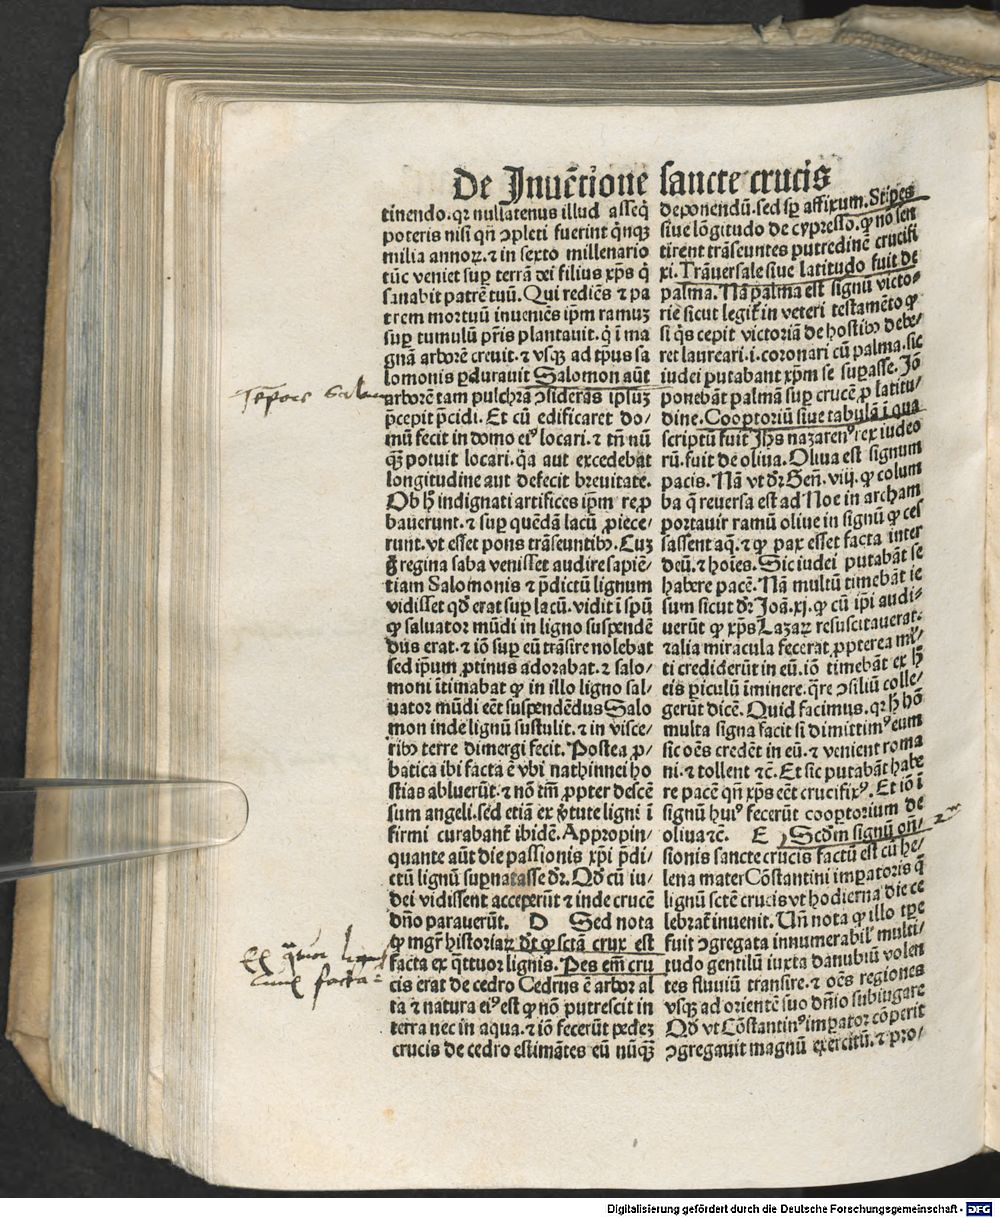 De Inuẽtione sancte crucis
tinendo. qꝛ nullatenus illud asseq̃
poteris nisi qñ ↄpleti fuerint q̃nqꝫ
milia annoꝝ. ⁊ in sexto millenario
tũc veniet suꝑ terrã dei filius xp̃s q̃
sanabit patrẽ tuũ. Qui rediẽs ⁊ pa
trem mortuũ inueniẽs ip̃m ramuꝫ
suꝑ tumulũ pr̃is plantauit. q̃ ĩ ma
gnã arborẽ creuit. ⁊ vsqꝫ ad tp̃us sa
lomonis ꝑdurauit Salomon aũt
arborẽ tam pulchrã ↄsiderãs ipsuꝫ
p̃cepit p̃cidi. Et cũ edificaret do⸗
mũ fecit in domo eiꝰ locari. ⁊ tñ nũ
qꝫ̃ potuit locari. q̃a aut excedebat
longitudine aut defecit breuitate.
Ob ħ indignati artifices ip̃m reꝓ
bauerunt. ⁊ suꝑ quẽdã lacũ ꝓiece⸗
runt. vt esset pons trãseuntibꝰ. Cuꝫ
g̃ regina saba venisset audire sapiẽ⸗
tiam Salomonis ⁊ p̃dictũ lignum
vidisset qd̕ erat suꝑ lacũ. vidit ĩ sp̃ũ
ꝙ saluator mũdi in ligno suspendẽ
dus erat. ⁊ iõ suꝑ eũ trãsire nolebat
sed ip̃um ꝓtinus adorabat. ⁊ salo⸗
moni ĩtimabat ꝙ in illo ligno sal⸗
uator mũdi eẽt suspendẽdus Salo
mon inde lignũ sustulit. ⁊ in visce⸗
ribꝰ terre dimergi fecit. Postea ꝓ⸗
batica ibi facta ẽ vbi nathinnei ho
stias abluerũt. ⁊ nõ tm̃ ꝓpter descẽ
sum angeli. sed etiã ex v̕tute ligni ĩ
firmi curabant̕ ibidẽ. Appropin⸗
quante aũt die passionis xp̃i p̃di⸗
ctũ lignũ suꝑnatasse dr̃. Qd̕ cũ iu⸗
dei vidissent acceperũt ⁊ inde crucẽ
dño parauerũt. D Sed nota
ꝙ mgr̃ historiaꝝ dt̕ ꝙ sctã crux est
facta ex q̃ttuor lignis. Pes em̃ cru
cis erat de cedro Cedrus ẽ arbor al
ta ⁊ natura eiꝰ est ꝙ nõ putrescit in
terra nec in aqua. ⁊ iõ fecerũt pedeꝫ
crucis de cedro estimãtes eũ nũqꝫ̃
deponendũ. sed sꝑ affixum. Stipes
siue lõgitudo de cypresso. ꝙ nõ sen
tirent trãseuntes putredinẽ crucifi
xi. Trãuersale siue latitudo fuit de
palma. Nã palma est signũ victo⸗
rie sicut legit̕ in veteri testamẽto ꝙ
si q̃s cepit victoriã de hostibꝰ debe⸗
ret laureari. i. coronari cũ palma. sic
iudei putabant xp̃m se suꝑasse. Jõ
ponebãt palmã suꝑ crucẽ ꝓ latitu⸗
dine. Cooꝑtoriũ siue tabulã ĩ qua
scriptũ fuit Jhs nazarenꝰ rex iudeo
rũ. fuit de oliua. Oliua est signum
pacis. Nã vt dr̃ Geñ. viij. ꝙ colum
ba q̃ reuersa est ad Noe in archam
portauit ramũ oliue in signũ ꝙ ces
sassent aq̃. ⁊ ꝙ pax esset facta inter
deũ. ⁊ hoĩes. Sic iudei putabãt se
habere pacẽ. Nã multũ timebãt ie
sum sicut dr̃ Joã. xj. ꝙ cũ ip̃i audi⸗
uerũt ꝙ xp̃s Lazaꝝ resuscitauerat.
⁊ alia miracula fecerat. ꝓpterea ml̕
ti crediderũt in eũ. iõ timebãt ex ħ
eis ꝑiculũ ĩminere. q̃re ↄsiliũ colle⸗
gerũt dicẽ. Quid facimus. qꝛ ħ hõ
multa signa facit si dimittimꝰ eum
sic oẽs credẽt in eũ. ⁊ venient roma
ni. ⁊ tollent ⁊c̃. Et sic putabãt habe
re pacẽ qñ xp̃s eẽt crucifixꝰ. Et iõ ĩ
signũ huiꝰ fecerũt cooꝑtorium de
oliua ⁊c̃. E Scd̕m signũ oñ⸗
sionis sancte crucis factũ est cũ he⸗
lena mater Cõstantini imꝑatoris q̃
lignũ sctẽ crucis vt hodierna die ce
lebrat̕ inuenit. Uñ nota ꝙ illo tp̃e
fuit ↄgregata innumerabil̕ multi⸗
tudo gentiliũ iuxta danubiũ volen
tes fluuiũ transire. ⁊ oẽs regiones
vsqꝫ ad orientẽ suo dñio subiugare
Qd̕ vt Cõstantinꝰ imꝑator cõperit
ↄgregauit magnũ exercitũ. ⁊ pro⸗
Digitalisierung gefördert durch die Deutsche Forschungsgemeinschaft - DFG